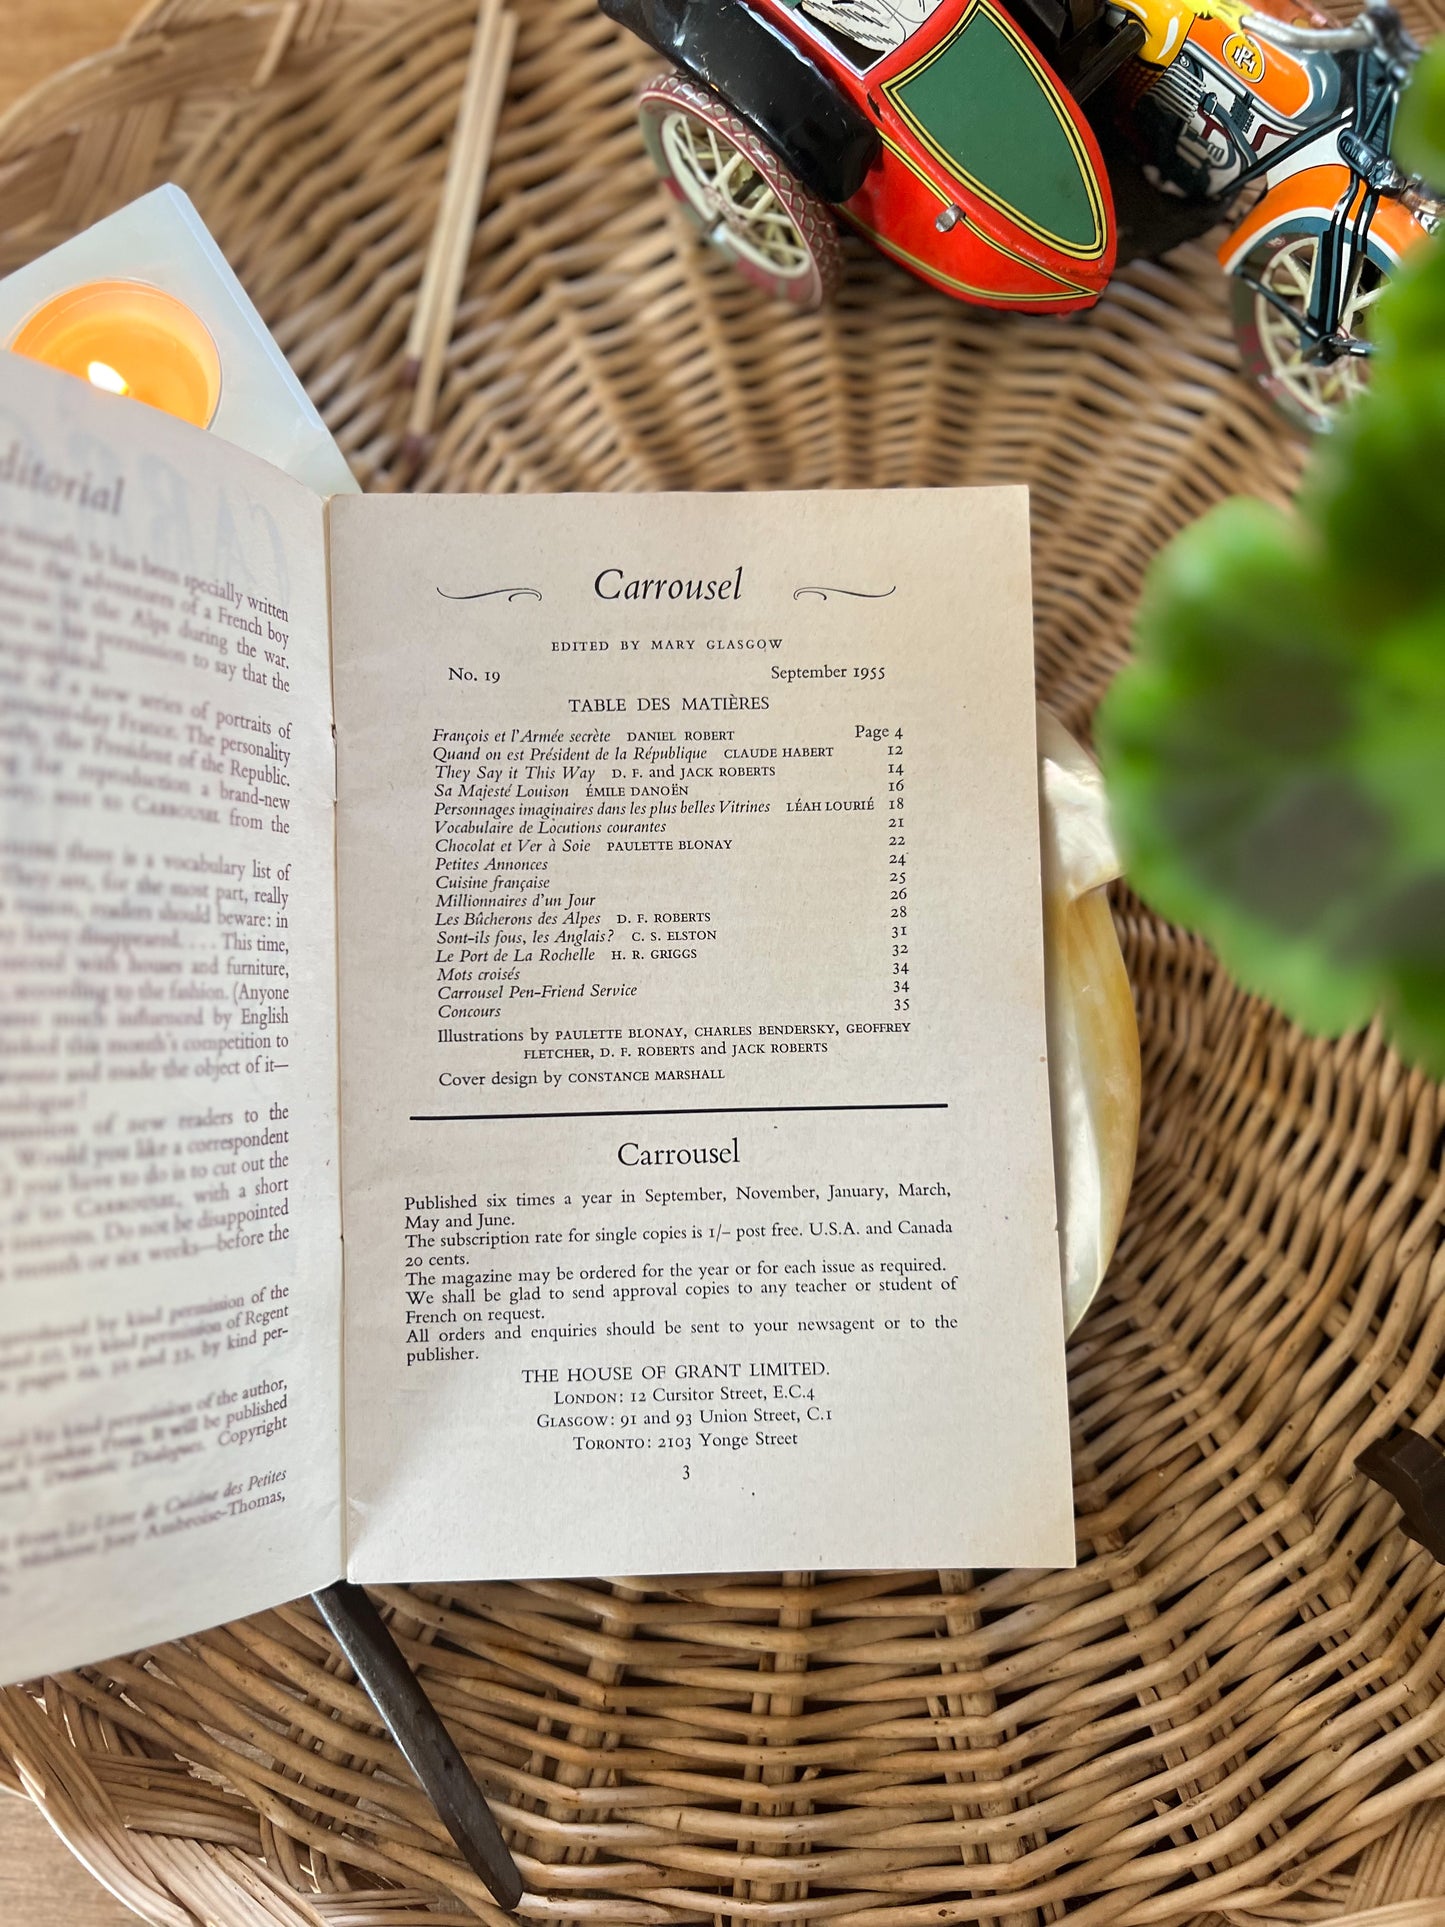 ditorial
It has been specially written
the adventures of a French boy
in the Alps during the war.
permission to say that the
of a new series of portraits of
France. The personality
the President of the Republic.
for reproduction a brand-new
CARROUSEL from the
there is a vocabulary list of
for the most part, really
readers should beware: in
have disappeared. . . . This time,
with houses and furniture,
according to the fashion. (Anyone
much influenced by English
this month's competition to
and made the object of it—
of new readers to the
Would you like a correspondent
you have to do is to cut out the
to CARROUSEL, with a short
Do not be disappointed
month or six weeks—before the
by kind permission of the
by kind permission of Regent
pages and by kind per-
permission of the author,
It will be published
Dialogues. Copyright
Cuisine des Petites
Ambroise-Thomas,
Carrousel
EDITED BY MARY GLASGOW
No. 19 September 1955
TABLE DES MATIÈRES
François et l'Armée secrète DANIEL ROBERT Page 4
Quand on est Président de la République CLAUDE HABERT 12
They Say it This Way D. F. and JACK ROBERTS 14
Sa Majesté Louison ÉMILE DANOËN 16
Personnages imaginaires dans les plus belles Vitrines LÉAH LOURIÉ 18
Vocabulaire de Locutions courantes 21
Chocolat et Ver à Soie PAULETTE BLONAY 22
Petites Annonces 24
Cuisine française 25
Millionnaires d'un Jour 26
Les Bûcherons des Alpes D. F. ROBERTS 28
Sont-ils fous, les Anglais? C. S. ELSTON 31
Le Port de La Rochelle H. R. GRIGGS 32
Mots croisés 34
Carrousel Pen-Friend Service 34
Concours 35
Illustrations by PAULETTE BLONAY, CHARLES BENDERSKY, GEOFFREY
FLETCHER, D. F. ROBERTS and JACK ROBERTS
Cover design by CONSTANCE MARSHALL
Carrousel
Published six times a year in September, November, January, March,
May and June.
The subscription rate for single copies is 1/– post free. U.S.A. and Canada
20 cents.
The magazine may be ordered for the year or for each issue as required.
We shall be glad to send approval copies to any teacher or student of
French on request.
All orders and enquiries should be sent to your newsagent or to the
publisher.
THE HOUSE OF GRANT LIMITED.
LONDON: 12 Cursitor Street, E.C.4
GLASGOW: 91 and 93 Union Street, C.1
TORONTO: 2103 Yonge Street
3